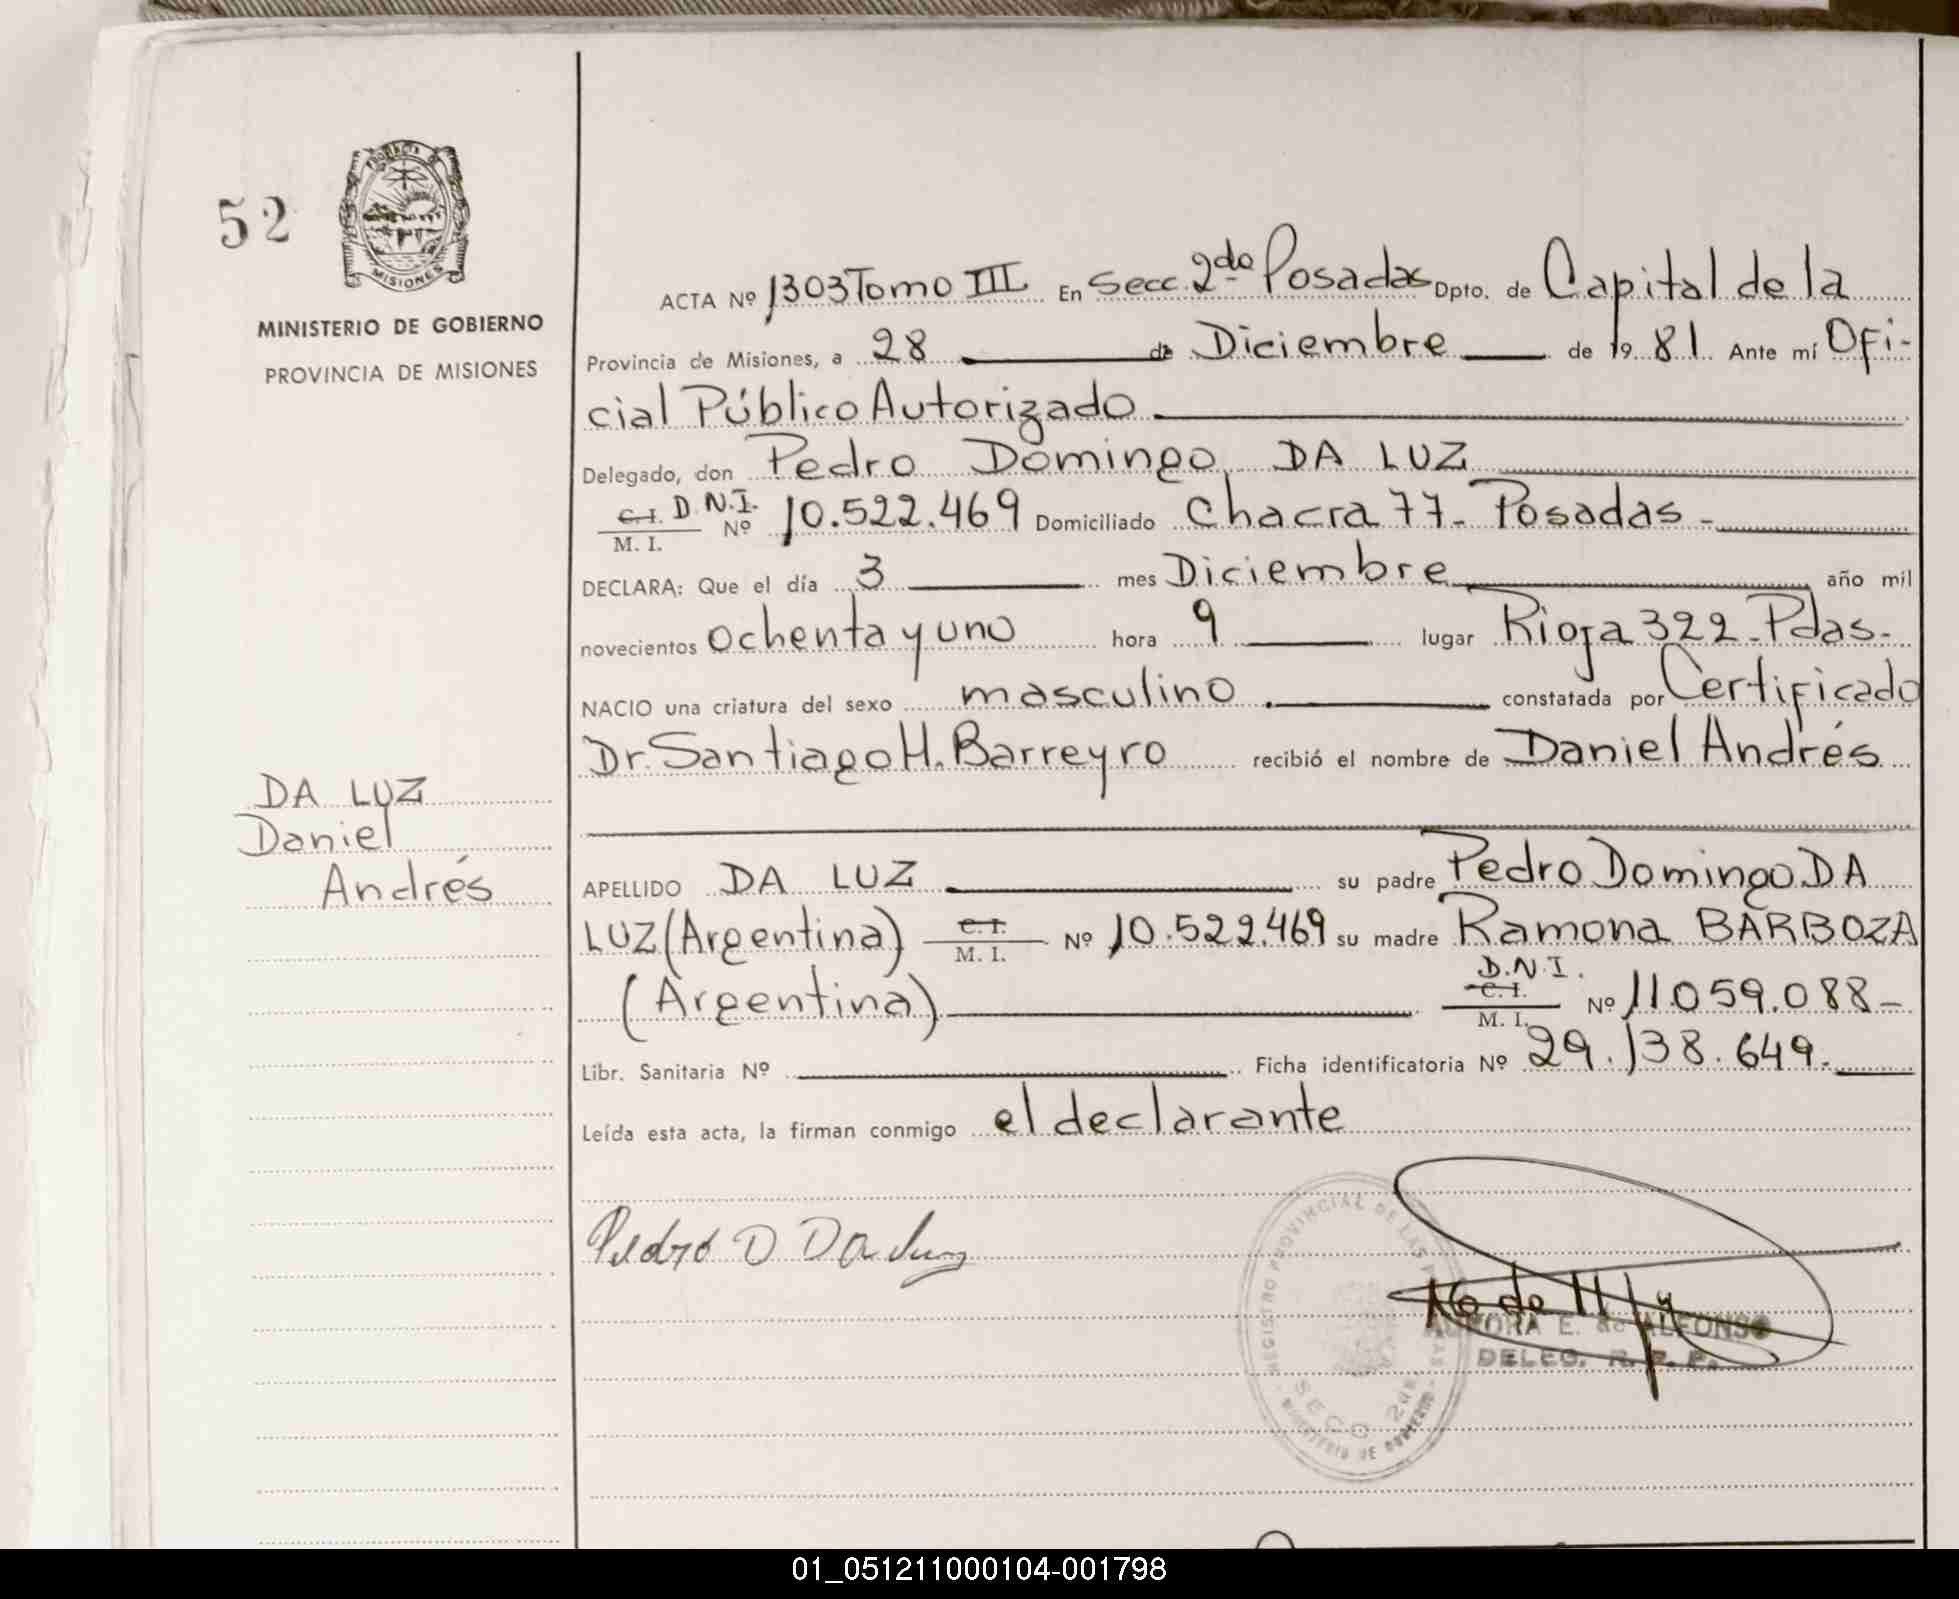 52
PROVINCIA DE
MISIONES
MINISTERIO DE GOBIERNO
PROVINCIA DE MISIONES
DA LUZ
Daniel
Andrés
ACTA Nº 1303 Tomo III En Secc. 2da Posadas Dpto. de Capital de la
Provincia de Misiones, a 28 de Diciembre de 19 81 Ante mí Ofi-
cial Público Autorizado
Delegado, don Pedro Domingo DA LUZ
C.I. D.N.I.
M. I. Nº 10.522.469 Domiciliado Chacra 77- Posadas -
DECLARA: Que el día 3 mes Diciembre año mil
novecientos ochenta y uno hora 9 lugar Rioja 322-Pdas-
NACIO una criatura del sexo masculino. constatada por Certificado
Dr. Santiago H. Barreyro recibió el nombre de Daniel Andrés
APELLIDO DA LUZ su padre Pedro Domingo DA
LUZ (Argentina) C.I. M. I. Nº 10.522.469 su madre Ramona BARBOZA
D.N.I.
(Argentina) C.I. M. I. Nº 11.059.088-
Libr. Sanitaria Nº Ficha identificatoria Nº 29.138.649.
Leída esta acta, la firman conmigo el declarante
Pedro D Da Luz
REGISTRO PROVINCIAL DE LAS PERSONAS
SECC 2da
MINISTERIO DE GOBIERNO
AURORA E. de ALFONSO
DELEG. R. P. P.
01_051211000104-001798